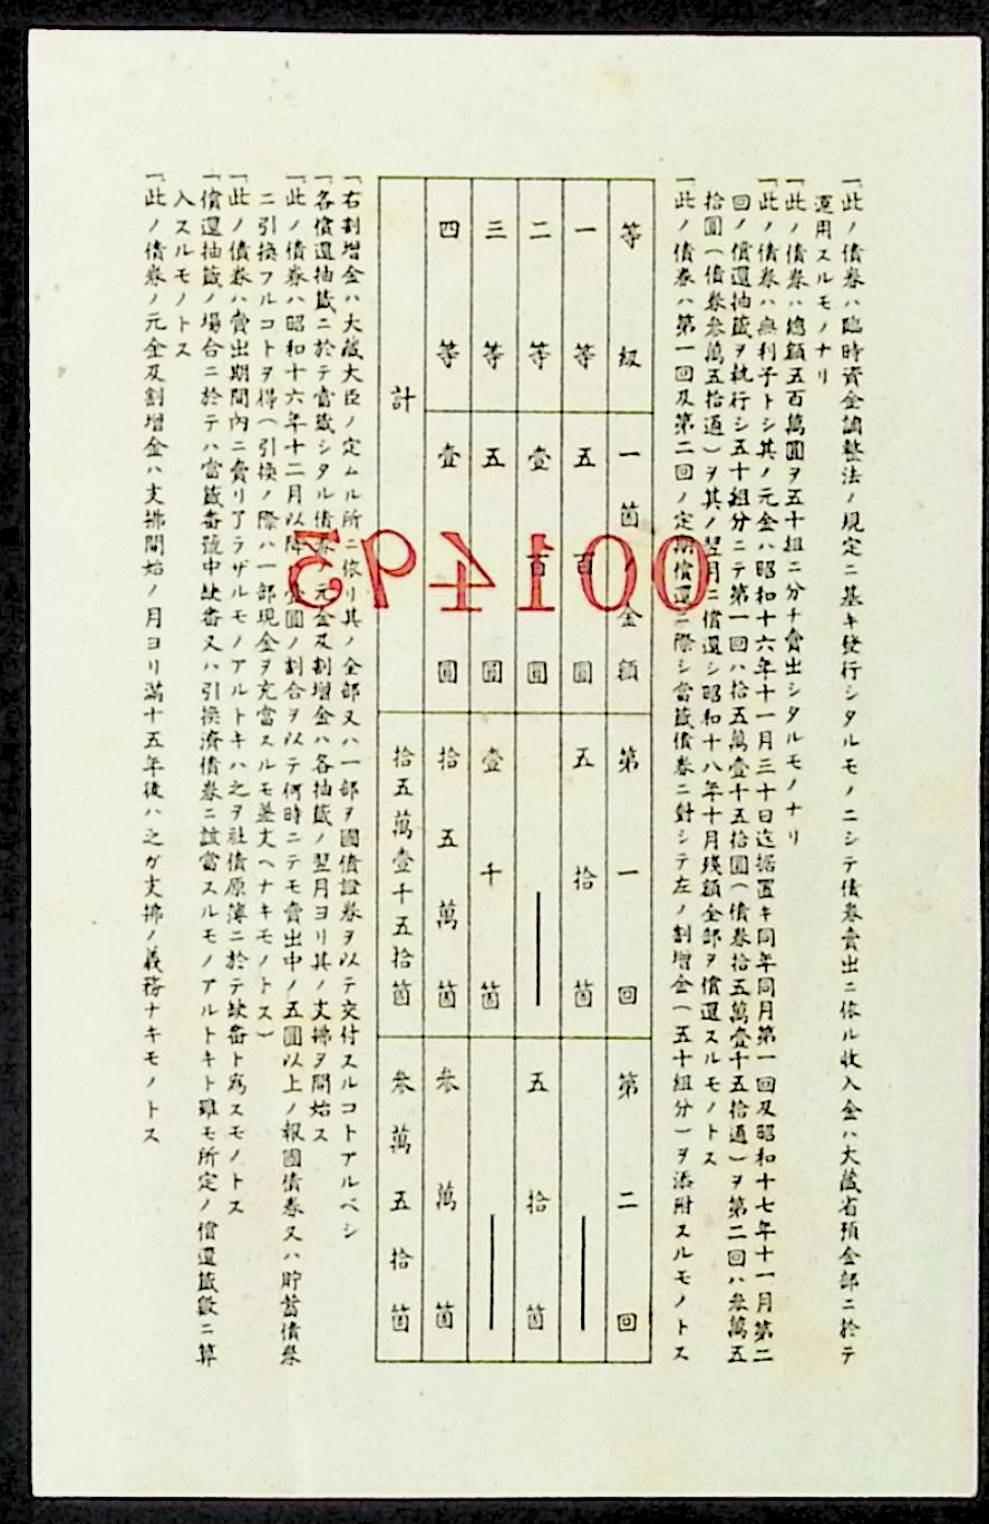 一此ノ債券ハ臨時資金調整法ノ規定ニ基キ發行シタルモノニシテ債券賣出ニ依ル收入金ハ大藏省預金部ニ於テ
運用スルモノナリ
一此ノ債券ハ總額五百萬圓ヲ五十組ニ分チ賣出シタルモノナリ
一此ノ債券ハ無利子トシ其ノ元金ハ昭和十六年十一月三十日迄据置キ同年同月第一回及昭和十七年十一月第二
回ノ償還抽籤ヲ執行シ五十組分ニテ第一回ハ拾五萬壹千五拾圓(債券拾五萬壹千五拾通)ヲ第二回ハ參萬五
拾圓(債券參萬五拾通)ヲ其ノ翌月ニ償還シ昭和十八年十月殘額全部ヲ償還スルモノトス
一此ノ債券ハ第一回及第二回ノ定期償還ニ際シ當籤債券ニ對シテ左ノ割增金(五十組分)ヲ添附スルモノトス
等級 一箇ノ金額 第一回 第二回
一等 五百圓 五拾箇 ―
二等 壹百圓 ― 五拾箇
三等 五圓 壹千箇 ―
四等 壹圓 拾五萬箇 參萬箇
計 拾五萬壹千五拾箇 參萬五拾箇
001493
一右割增金ハ大藏大臣ノ定ムル所ニ依リ其ノ全部又ハ一部ヲ國債證券ヲ以テ交付スルコトアルベシ
一各償還抽籤ニ於テ當籤シタル債券ノ元金及割增金ハ各抽籤ノ翌月ヨリ其ノ支拂ヲ開始ス
一此ノ債券ハ昭和十六年十二月以降壹圓ノ割合ヲ以テ何時ニテモ賣出中ノ五圓以上ノ報國債券又ハ貯蓄債券
ニ引換フルコトヲ得(引換ノ際ハ一部現金ヲ充當スルモ差支ヘナキモノトス)
一此ノ債券ハ賣出期間內ニ賣リ了ラザルモノアルトキハ之ヲ社債原簿ニ於テ缺番ト爲スモノトス
一償還抽籤ノ場合ニ於テハ當籤番號中缺番又ハ引換濟債券ニ該當スルモノアルトキト雖モ所定ノ償還籤數ニ算
入スルモノトス
一此ノ債券ノ元金及割增金ハ支拂開始ノ月ヨリ滿十五年後ハ之ガ支拂ノ義務ナキモノトス